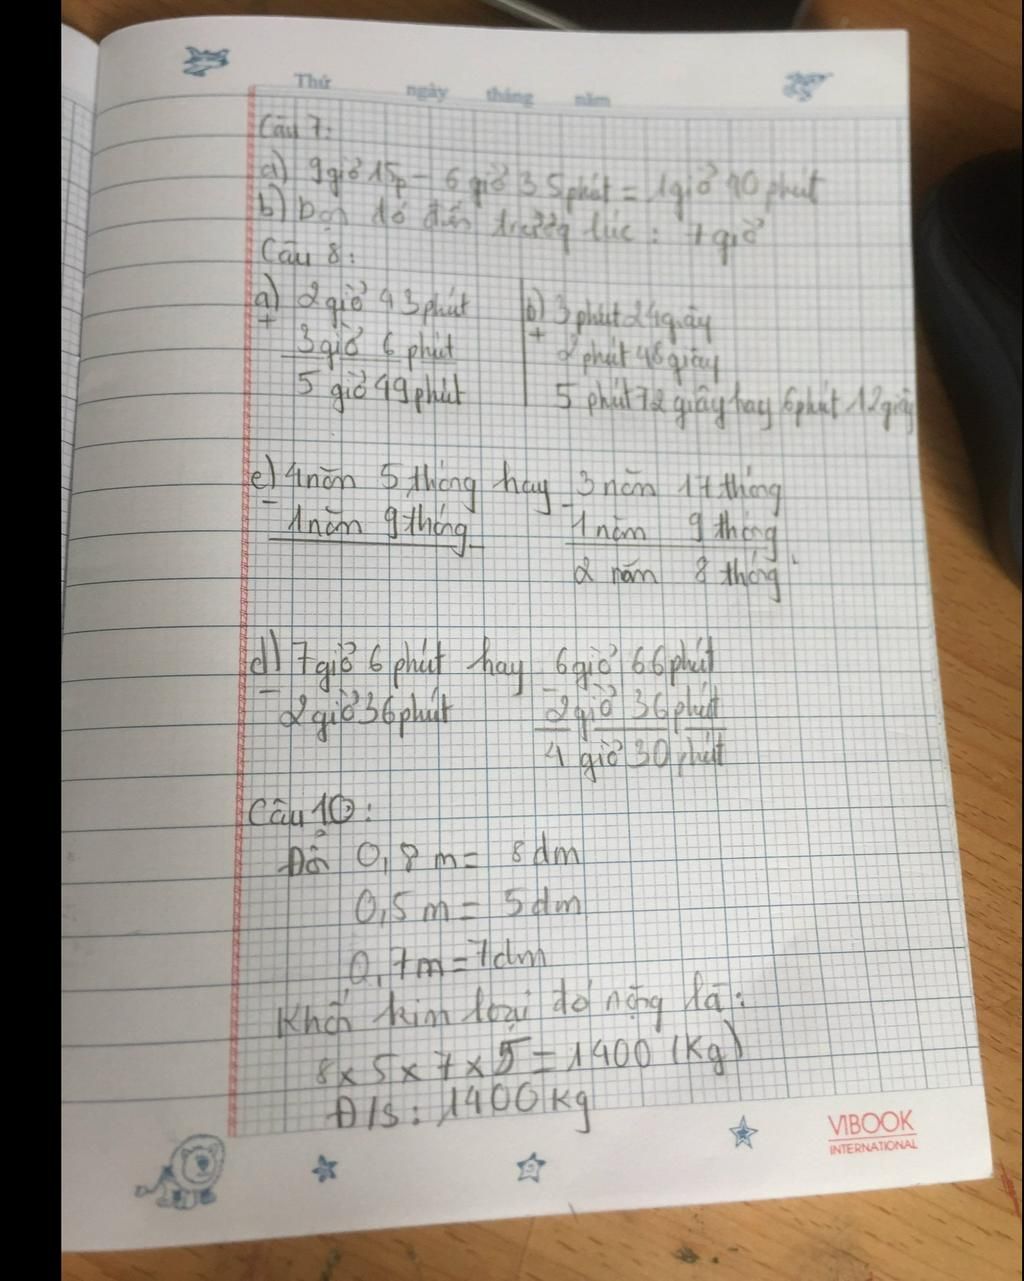 Thứ ngày tháng năm
Câu 7:
a) 9giờ 15p - 6 giờ 35phút = 1giờ 40 phút
b) Bạn đó đến trường lúc: 7giờ
Câu 8:
a) 2giờ 43phút
+ 3giờ 6 phút
5 giờ 49phút
b) 3phút24giây
+ 2phút 48giây
5 phút72giây hay 6phút 12giây
c) 4năm 5 tháng hay 3 năm 17 tháng
- 1năm 9 tháng - 1 năm 9 tháng
2 năm 8 tháng
d) 7giờ 6 phút hay 6giờ 66phút
- 2giờ36phút - 2giờ 36phút
4 giờ 30 phút
Câu 10:
Đổi 0,8 m = 8dm
0,5 m = 5dm
0,7m = 7dm
Khối kim loại đó nặng là:
8 x 5 x 7 x 5 = 1400 (kg)
Đ/S: 1400kg
VIBOOK
INTERNATIONAL